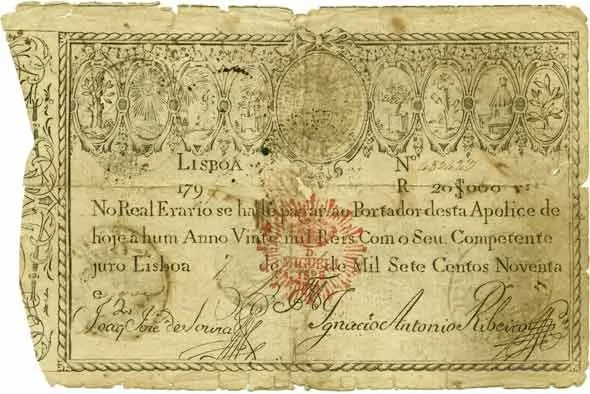 LISBOA Nº
179 R 20$000 rs
No Real Erario se ha de pagar ao Portador desta Apolice de
hoje a hum Anno Vinte mil Reis Com o Seu Competente
juro Lisboa de de Mil Sete Centos Noventa
e
D.
MIGUEL I
Joaq Joze de Souza Ignacio Antonio Ribeiro